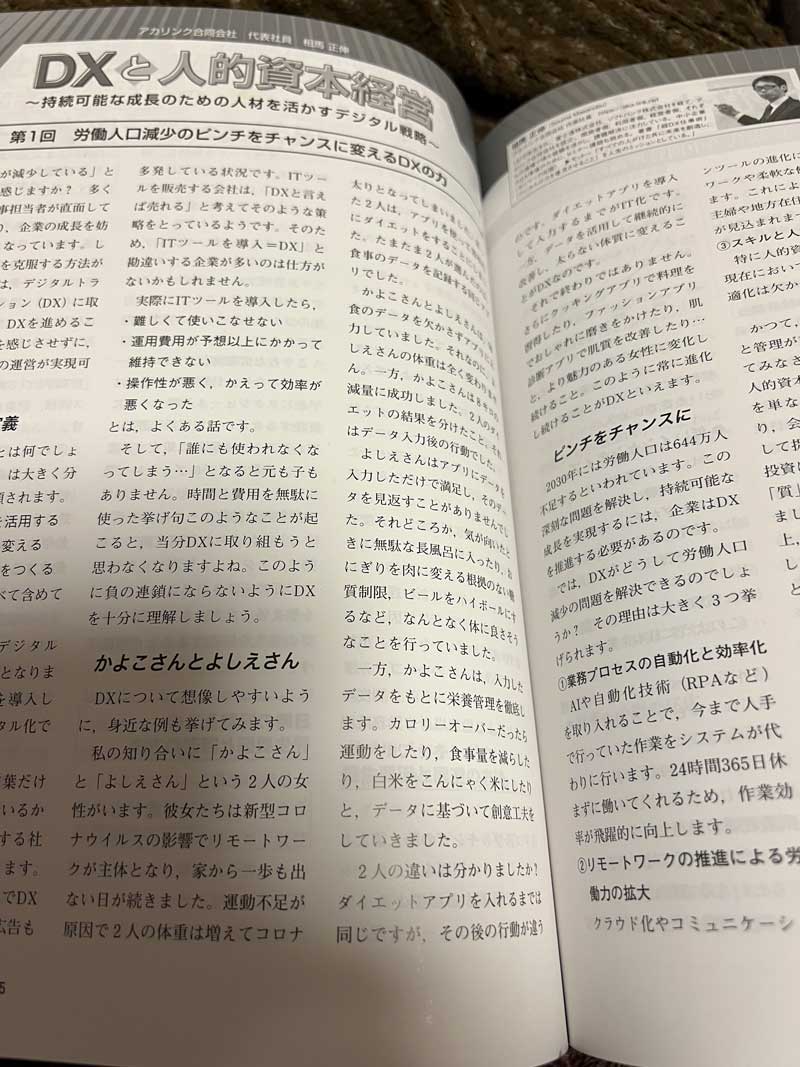 アカリンク合同会社　代表社員　相馬 正伸
DXと人的資本経営
～持続可能な成長のための人材を活かすデジタル戦略～
第1回　労働人口減少のピンチをチャンスに変えるDXの力
が減少している」と
感じますか？　多く
事担当者が直面して
り，企業の成長を妨
なっています。し
を克服する方法が
は，デジタルトラ
ション（DX）に取
DXを進めるこ
を感じさせずに，
の運営が実現可
義
とは何でしょ
は大きく分
類されます。
を活用する
変える
をつくる
べて含めて
デジタル
となりま
を導入し
タル化で
葉だけ
いるか
する社
ます。
でDX
広告も
多発している状況です。ITツー
ルを販売する会社は，「DXと言え
ば売れる」と考えてそのような策
略をとっているようです。そのた
め，「ITツールを導入＝DX」と
勘違いする企業が多いのは仕方が
ないかもしれません。
実際にITツールを導入したら，
・難しくて使いこなせない
・運用費用が予想以上にかかって
維持できない
・操作性が悪く，かえって効率が
悪くなった
とは，よくある話です。
そして，「誰にも使われなくな
ってしまう…」となると元も子も
ありません。時間と費用を無駄に
使った挙げ句このようなことが起
こると，当分DXに取り組もうと
思わなくなりますよね。このよう
に負の連鎖にならないようにDX
を十分に理解しましょう。
かよこさんとよしえさん
DXについて想像しやすいよう
に，身近な例も挙げてみます。
私の知り合いに「かよこさん」
と「よしえさん」という2人の女
性がいます。彼女たちは新型コロ
ナウイルスの影響でリモートワー
クが主体となり，家から一歩も出
ない日が続きました。運動不足が
原因で2人の体重は増えてコロナ
太りとなってしまいました
た2人は，アプリを使って
にダイエットをすることに
た。たまたま2人が選んだ
食事のデータを記録する同じアプ
リでした。
かよこさんとよしえさんは，
食のデータを欠かさずアプリに
力していました。それなのに，よ
しえさんの体重は全く変わりま
ん。一方，かよこさんは8キロ
減量に成功しました。2人のダイ
エットの結果を分けたこと。それ
はデータ入力後の行動でした。
よしえさんはアプリにデータを
入力しただけで満足し，そのデー
タを見返すことがありませんでし
た。それどころか，気が向いたと
きに無駄な長風呂に入ったり，お
にぎりを肉に変える根拠のない糖
質制限，ビールをハイボールにす
るなど，なんとなく体に良さそう
なことを行っていました。
一方，かよこさんは，入力した
データをもとに栄養管理を徹底し
ます。カロリーオーバーだったら
運動をしたり，食事量を減らした
り，白米をこんにゃく米にしたり
と，データに基づいて創意工夫を
していきました。
2人の違いは分かりましたか？
ダイエットアプリを入れるまでは
同じですが，その後の行動が違う
5
相馬 正伸
のです。ダイエットアプリを導入
して入力するまでがIT化です。
方，データを活用して継続的に
改善し，太らない体質に変えるこ
とがDXなのです。
それで終わりではありません。
さらにクッキングアプリで料理を
習得したり，ファッションアプリ
でおしゃれに磨きをかけたり，肌
診断アプリで肌質を改善したり…
と，より魅力のある女性に変化し
続けること。このように常に進化
し続けることがDXといえます。
ピンチをチャンスに
2030年には労働人口は644万人
不足するといわれています。この
深刻な問題を解決し，持続可能な
成長を実現するには，企業はDX
を推進する必要があるのです。
では，DXがどうして労働人口
減少の問題を解決できるのでしょ
うか？　その理由は大きく3つ挙
げられます。
①業務プロセスの自動化と効率化
AIや自動化技術（RPAなど）
を取り入れることで，今まで人手
で行っていた作業をシステムが代
わりに行います。24時間365日休
まずに働いてくれるため，作業効
率が飛躍的に向上します。
②リモートワークの推進による労
働力の拡大
クラウド化やコミュニケーシ
ンツールの進化に
ワークや柔軟な
ます。これによ
主婦や地方在住
が見込まれます
③スキルと人
特に人的
現在におい
適化は欠か
かつて，
と管理が
てみなさ
人的資本
を単な
り，会
して
投資に
「質」
まし
上，
し
と